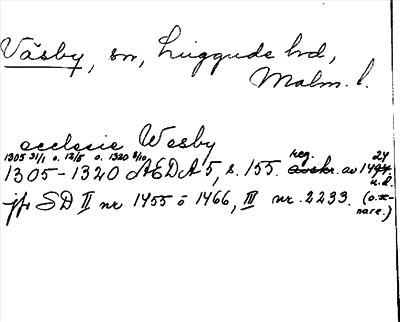 Väsby, sn, Luggude hd,
Malm. l.
ecclesie Wesby
1305 31/1 o. 12/5 o. 1320 8/10
1305-1320 AEDA 5, s. 155. reg. avskr. av 1494. 24
u.d.
jfr SD II nr 1455 o 1466, III nr. 2233. (o.
nare.)